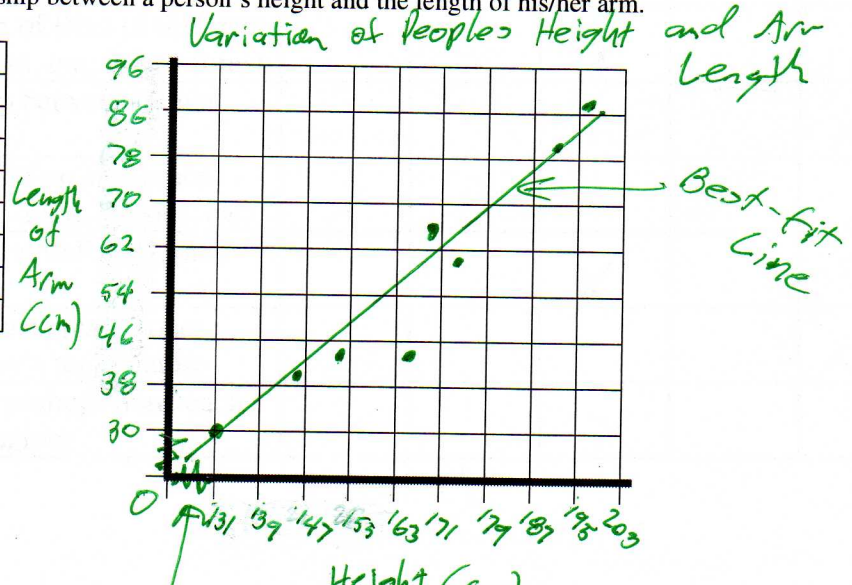 ship between a person's height and the length of his/her arm.
Variation of Peoples Height and Arm
Length
96
86
78
70
62
54
46
38
30
0
Length
of
Arm
(cm)
Best-fit
Line
131 139 147 155 163 171 179 187 195 203
Height